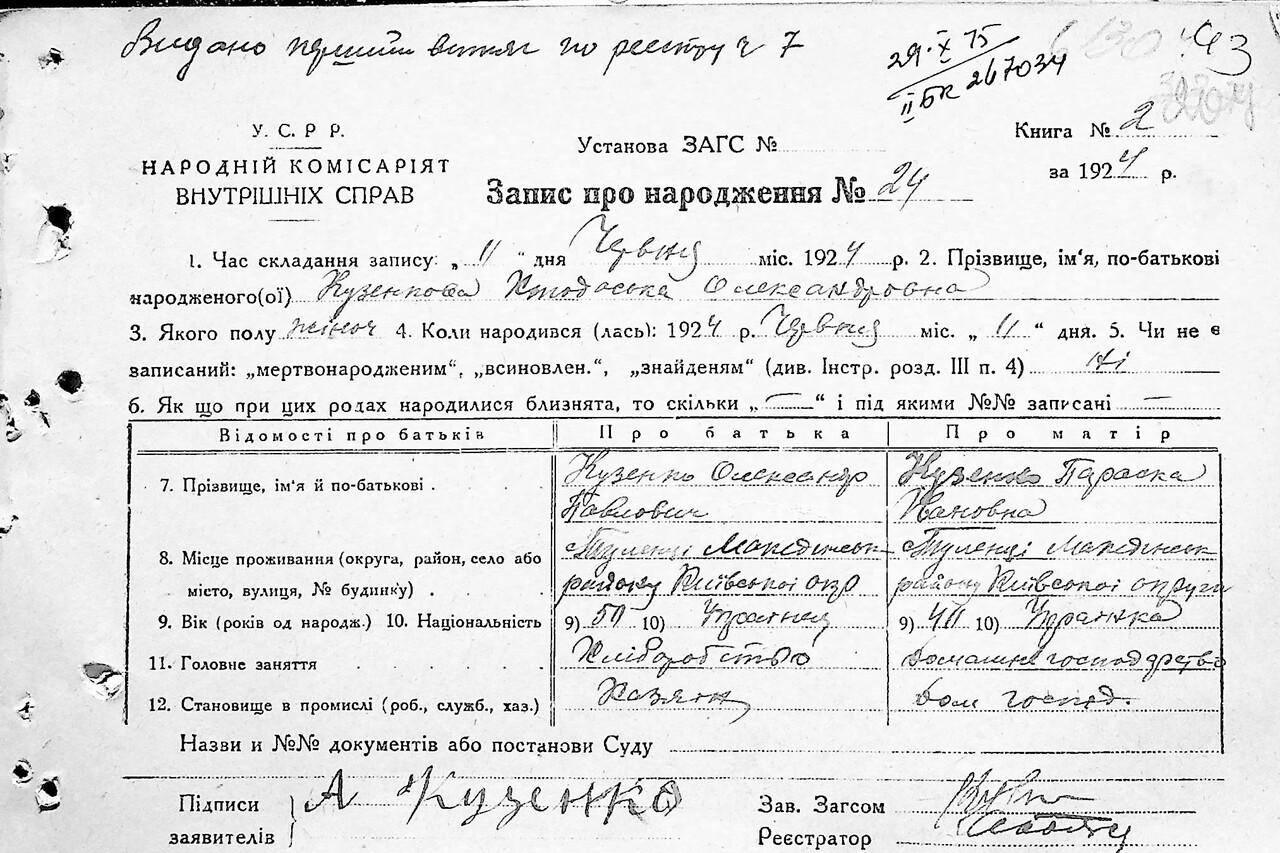 Видано перший витяг по реєстру ч 7
29.X 75
II БК 267034
43
У. С. Р Р.
НАРОДНІЙ КОМІСАРІЯТ
ВНУТРІШНІХ СПРАВ
Установа ЗАГС №
Книга № 2
за 1924 р.
Запис про народження № 24
1. Час складання запису: „ 11 " дня Червня міс. 1924 р. 2. Прізвище, ім'я, по-батькові
народженого(ої) Кузенкова Олександровна
3. Якого полу жіноч 4. Коли народився (лась): 1924 р. Червня міс. „ 11 " дня. 5. Чи не є
записаний: „мертвонародженим", „всиновлен.", „знайденям" (див. Інстр. розд. III п. 4) ні
6. Як що при цих родах народилися близнята, то скільки „ — " і під якими №№ записані —
Відомості про батьків Про батька Про матір
7. Прізвище, ім'я й по-батькові . Кузенко Олександр Павлович Кузенко Параска Івановна
8. Місце проживання (округа, район, село або місто, вулиця, № будинку) . с Туленці Макединськ району Київської окр с Тулинці Макединськ району Київської округи
9. Вік (років од народж.) 10. Національність 9) 50 10) Українец 9) 40 10) Українка
11. Головне заняття Хліборобство Домашнє господарство
12. Становище в промислі (роб., служб., хаз.) Хазяін Дом господ.
Назви и №№ документів або постанови Суду
Підписи
заявителів
А Кузенко
Зав. Загсом
Реєстратор